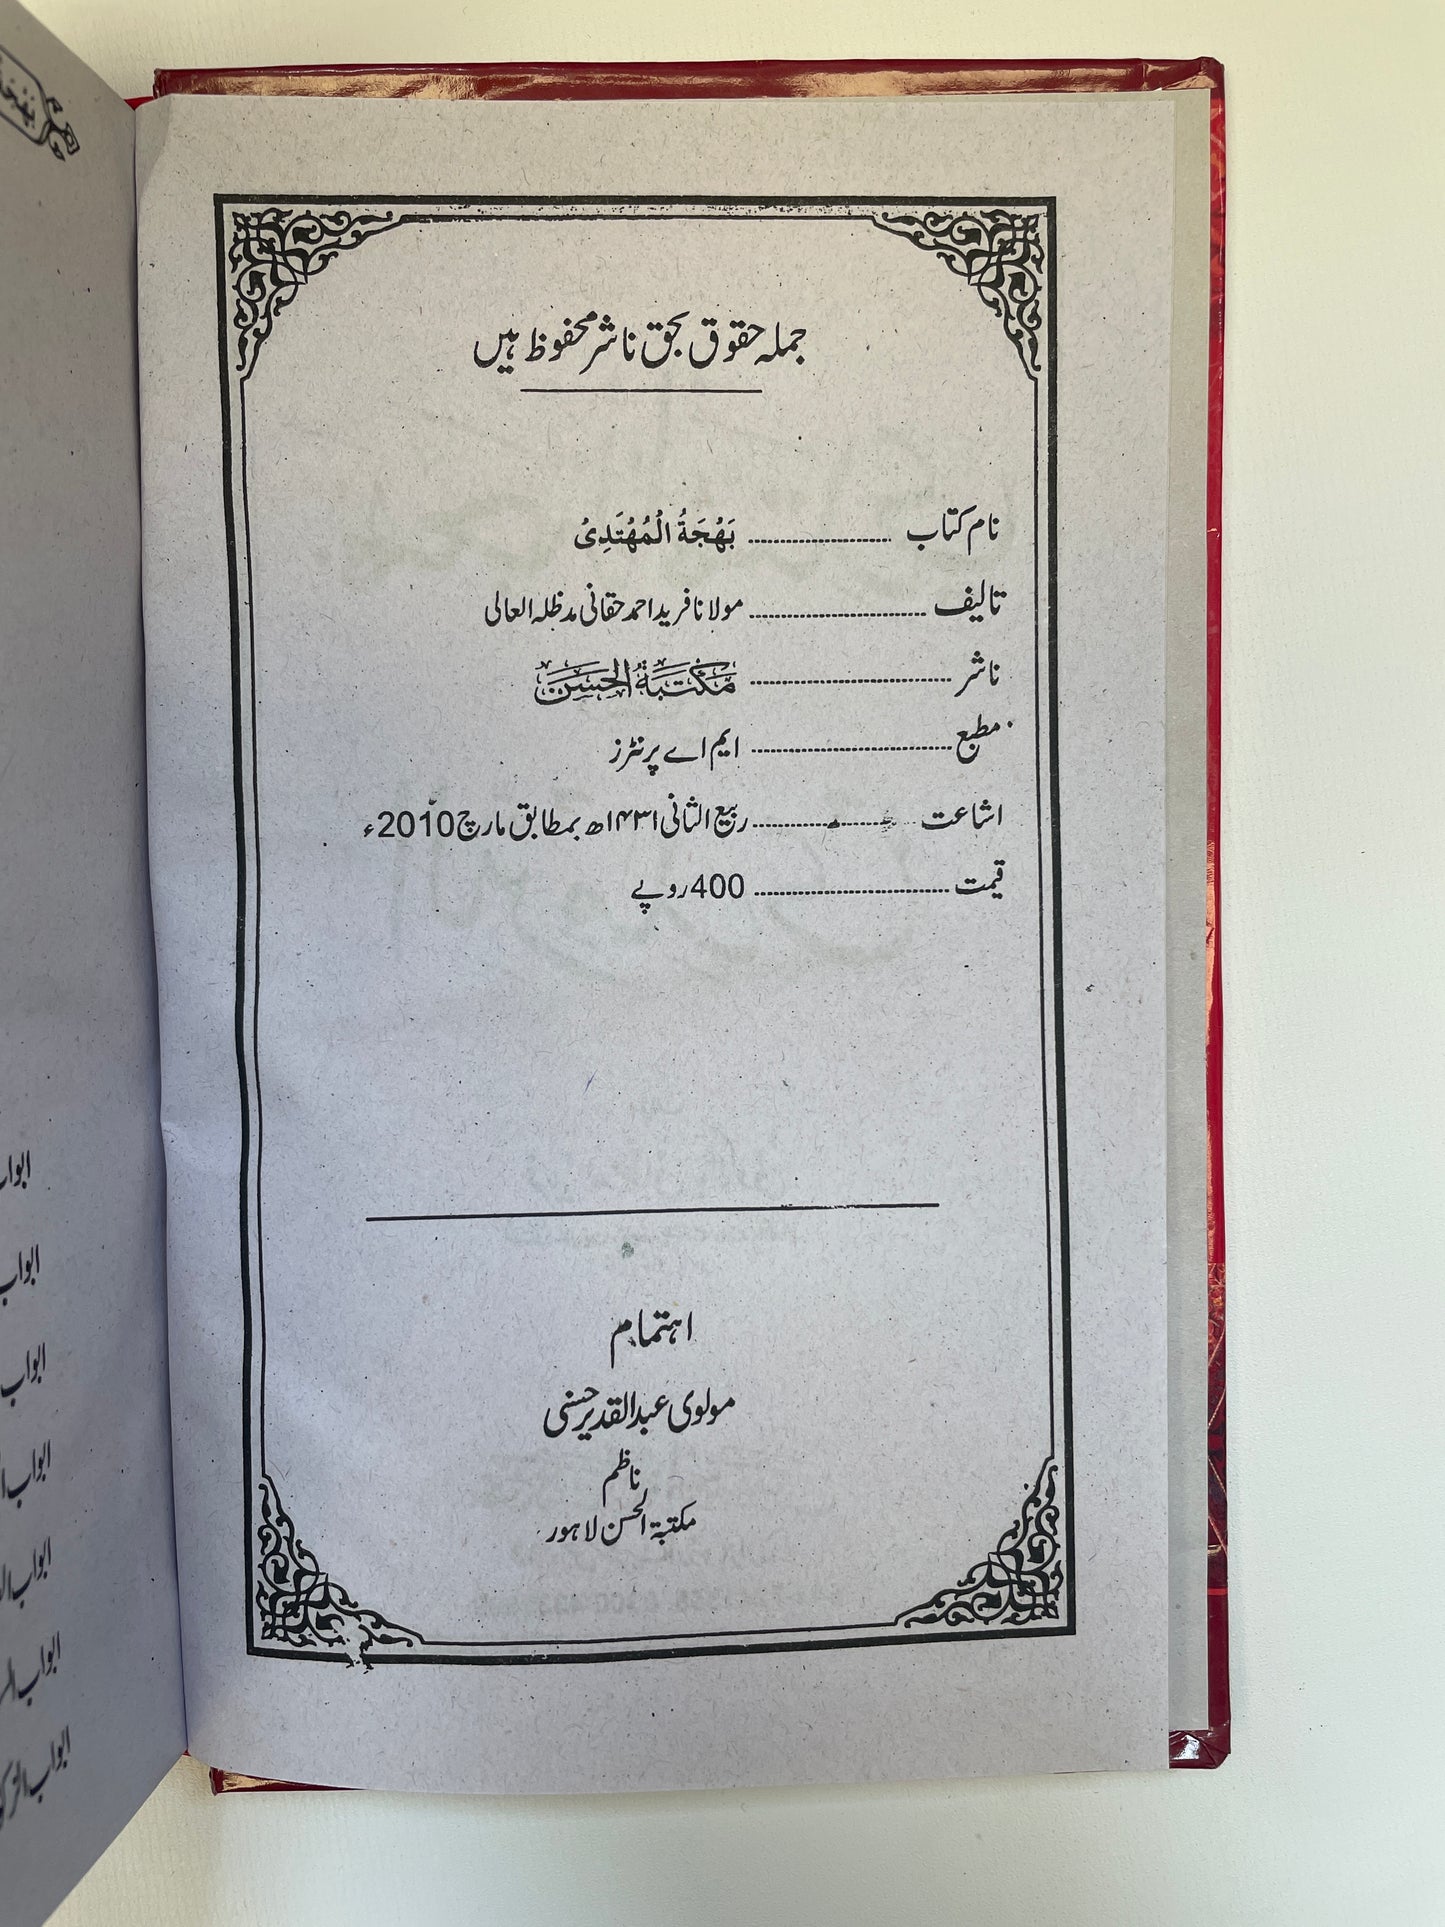 جملہ حقوق بحق ناشر محفوظ ہیں
نام کتاب ........................ بَهْجَةُ الْمُهْتَدِیْ
تالیف ........................ مولانا فرید احمد حقانی مدظلہ العالی
ناشر ........................ مَكْتَبَةُ الْحَسَنْ
مطبع ........................ ایم اے پرنٹرز
اشاعت ........................ ربیع الثانی ۱۴۳۱ھ بمطابق مارچ 2010ء
قیمت ........................ 400 روپے
اہتمام
مولوی عبدالقدیر حسنی
ناظم
مکتبۃ الحسن لاہور
ابواب
ابواب
ابواب
ابواب
ابواب
ابواب
ابواب